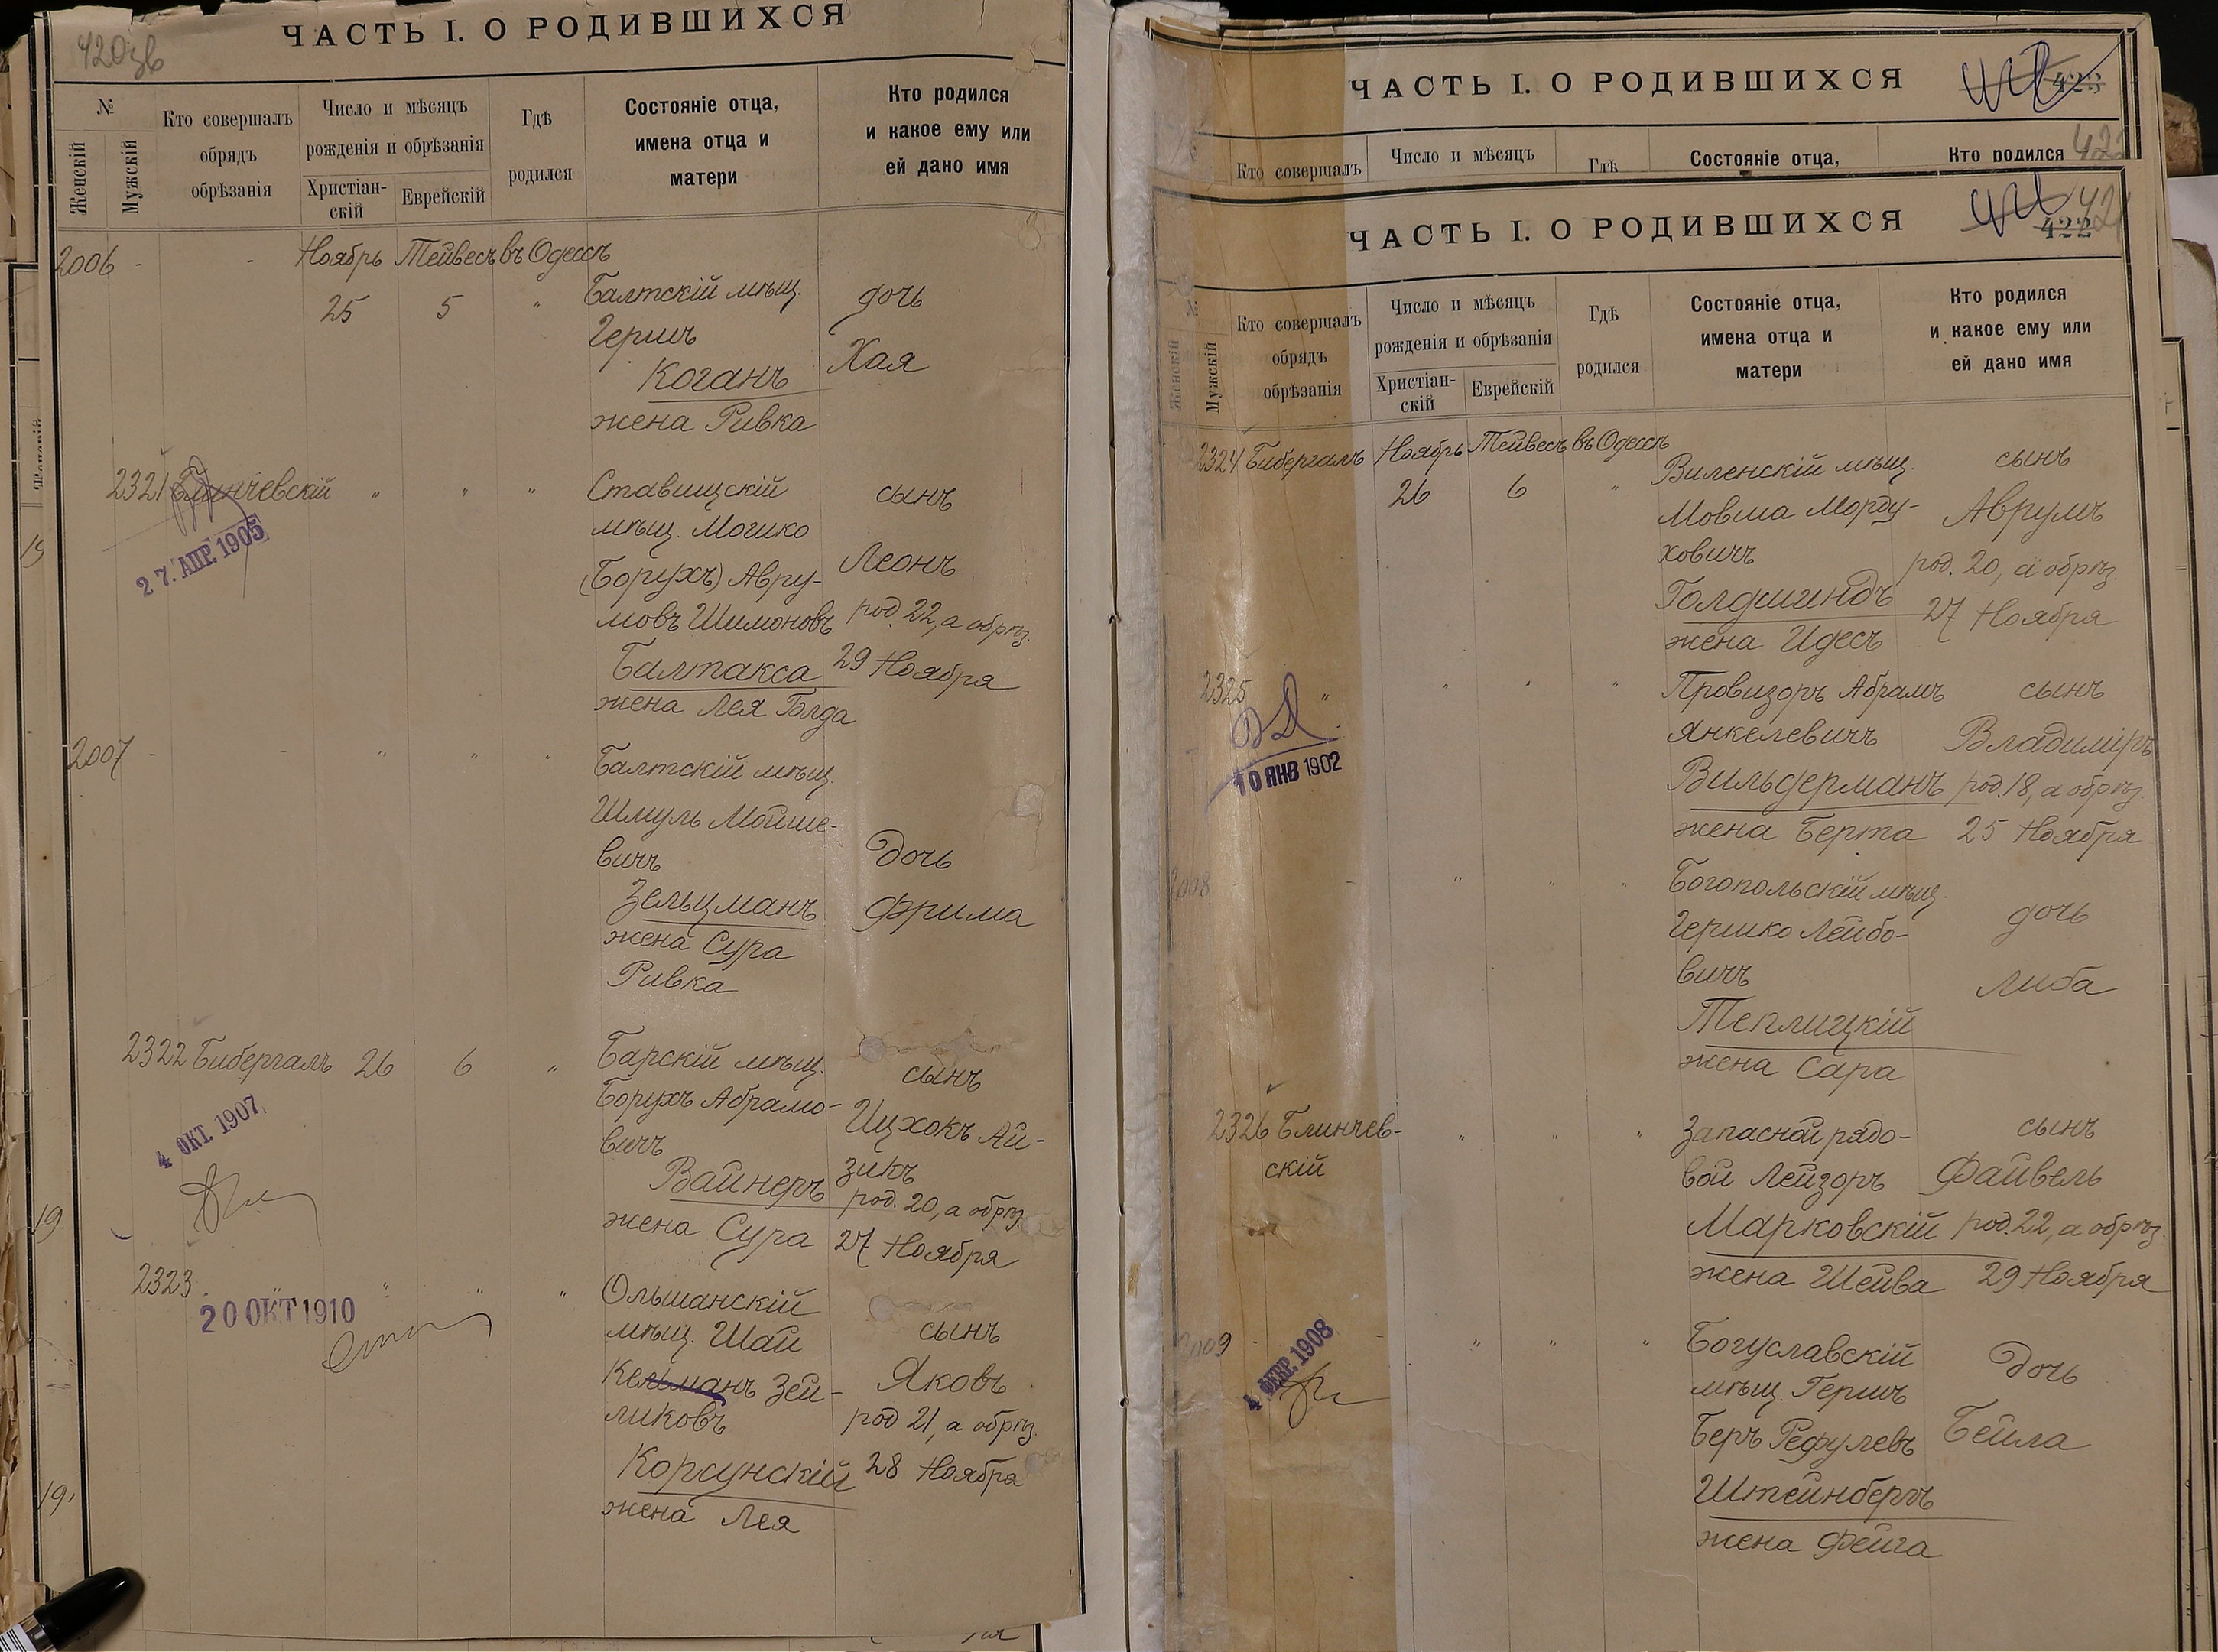 420 об
ЧАСТЬ I. О РОДИВШИХСЯ
№
Женскій
Мужскій
Кто совершалъ
обрядъ
обрѣзанія
Число и мѣсяцъ
рожденія и обрѣзанія
Христіан-
скій
Еврейскій
Гдѣ
родился
Состояніе отца,
имена отца и
матери
Кто родился
и какое ему или
ей дано имя
2006 - - Ноябрь Тейвесъ въ Одессѣ
25 5 " Балтскій мѣщ. дочь
Гершъ
Коганъ Хая
жена Ривка
2321 Блинчевскій " " " Ставищскій сынъ
27. АПР. 1905
мѣщ. Мошко
(Борухъ) Авру- Леонъ
мовъ Шимоновъ род. 22, а обрѣз.
Балтакса 29 Ноября
жена Лея Голда
2007 - - " " " Балтскій мѣщ.
Шмуль Мойше-
вичъ дочь
Зельцманъ Фрима
жена Сура
Ривка
2322 Бибергалъ 26 6 " Барскій мѣщ. сынъ
4 ОКТ. 1907.
Борухъ Абрамо- Ицхокъ Ай-
вичъ зикъ
Вайнеръ род. 20, а обрѣз.
жена Сура 27 Ноября
2323 " " " " Ольшанскій
20 ОКТ 1910
мѣщ. Шай сынъ
Кельманъ Зей- Яковъ
ликовъ род 21, а обрѣз.
Корсунскій 28 Ноября
жена Лея
ЧАСТЬ I. О РОДИВШИХСЯ
423
422
Кто совершалъ
Число и мѣсяцъ
Гдѣ
Состояніе отца,
Кто родился
ЧАСТЬ I. О РОДИВШИХСЯ
422
421
№
Женскій
Мужскій
Кто совершалъ
обрядъ
обрѣзанія
Число и мѣсяцъ
рожденія и обрѣзанія
Христіан-
скій
Еврейскій
Гдѣ
родился
Состояніе отца,
имена отца и
матери
Кто родился
и какое ему или
ей дано имя
2324 Бибергалъ Ноябрь Тейвесъ въ Одессѣ
26 6 " Виленскій мѣщ. сынъ
Мовша Морду- Аврумъ
ховичъ род. 20, а обрѣз.
Голдшиндъ 27 Ноября
жена Идесъ
2325 " " " " Провизоръ Абрамъ сынъ
10 ЯНВ 1902
Янкелевичъ Владиміръ
Вильдерманъ род. 18, а обрѣз.
жена Берта 25 Ноября
2008 - " " " Богопольскій мѣщ.
Гершко Лейбо- дочь
вичъ Либа
Теплицкій
жена Сара
2326 Блинчев- " " " Запасной рядо- сынъ
скій вой Лейзоръ Файвель
Марковскій род. 22, а обрѣз.
жена Шейва 29 Ноября
2009 - - " " " Богуславскій дочь
4 ФЕВР. 1908
мѣщ. Гершъ
Беръ Рефулевъ Бейла
Штейнбергъ
жена Фейга